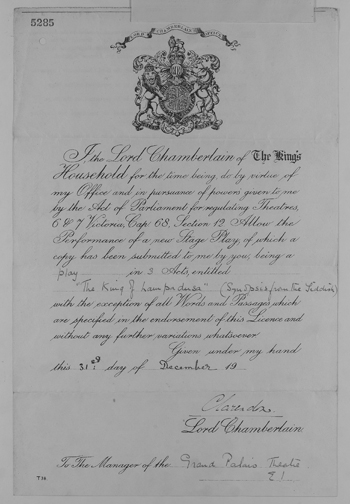 5285
LORD CHAMBERLAIN'S OFFICE
I, the Lord Chamberlain of The King's
Household for the time being, do by virtue of
my Office and in pursuance of powers given to me
by the Act of Parliament for regulating Theatres,
6 & 7 Victoria, Cap. 68, Section 12 Allow the
Performance of a new Stage Play, of which a
copy has been submitted to me by you, being a
play in 3 Acts, entitled
"The King of Lampedusa" (Synopsis from the Yiddish)
with the exception of all Words and Passages which
are specified in the endorsement of this Licence and
without any further variations whatsoever.
Given under my hand
this 31st day of December 19
Clarendon
Lord Chamberlain
To The Manager of the Grand Palais Theatre
E1